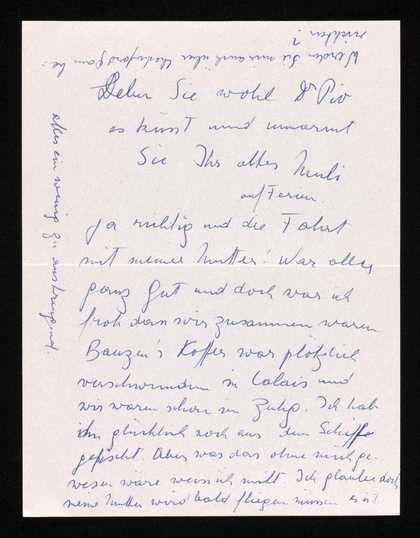 Leben Sie wohl Dr Pio
es küsst und umarmt
Sie Ihr altes Muli
auf Ferien.
Ja richtig und die Fahrt
mit meiner Mutter! War alles
ganz gut und doch war ich
froh dass wir zusammen waren
Bauzen's Koffer war plötzlich
verschwunden in Calais und
wir waren schon im Zuge. Ich hab
ihn glücklich noch aus dem Schiffe
gefischt. Aber was das ohne mich ge-
wesen wäre weiss ich nicht. Ich glaube doch
meine Mutter wird bald fliegen müssen es ist
alles ein wenig zu anstrengend.
Werden Sie mir auch über
richten?